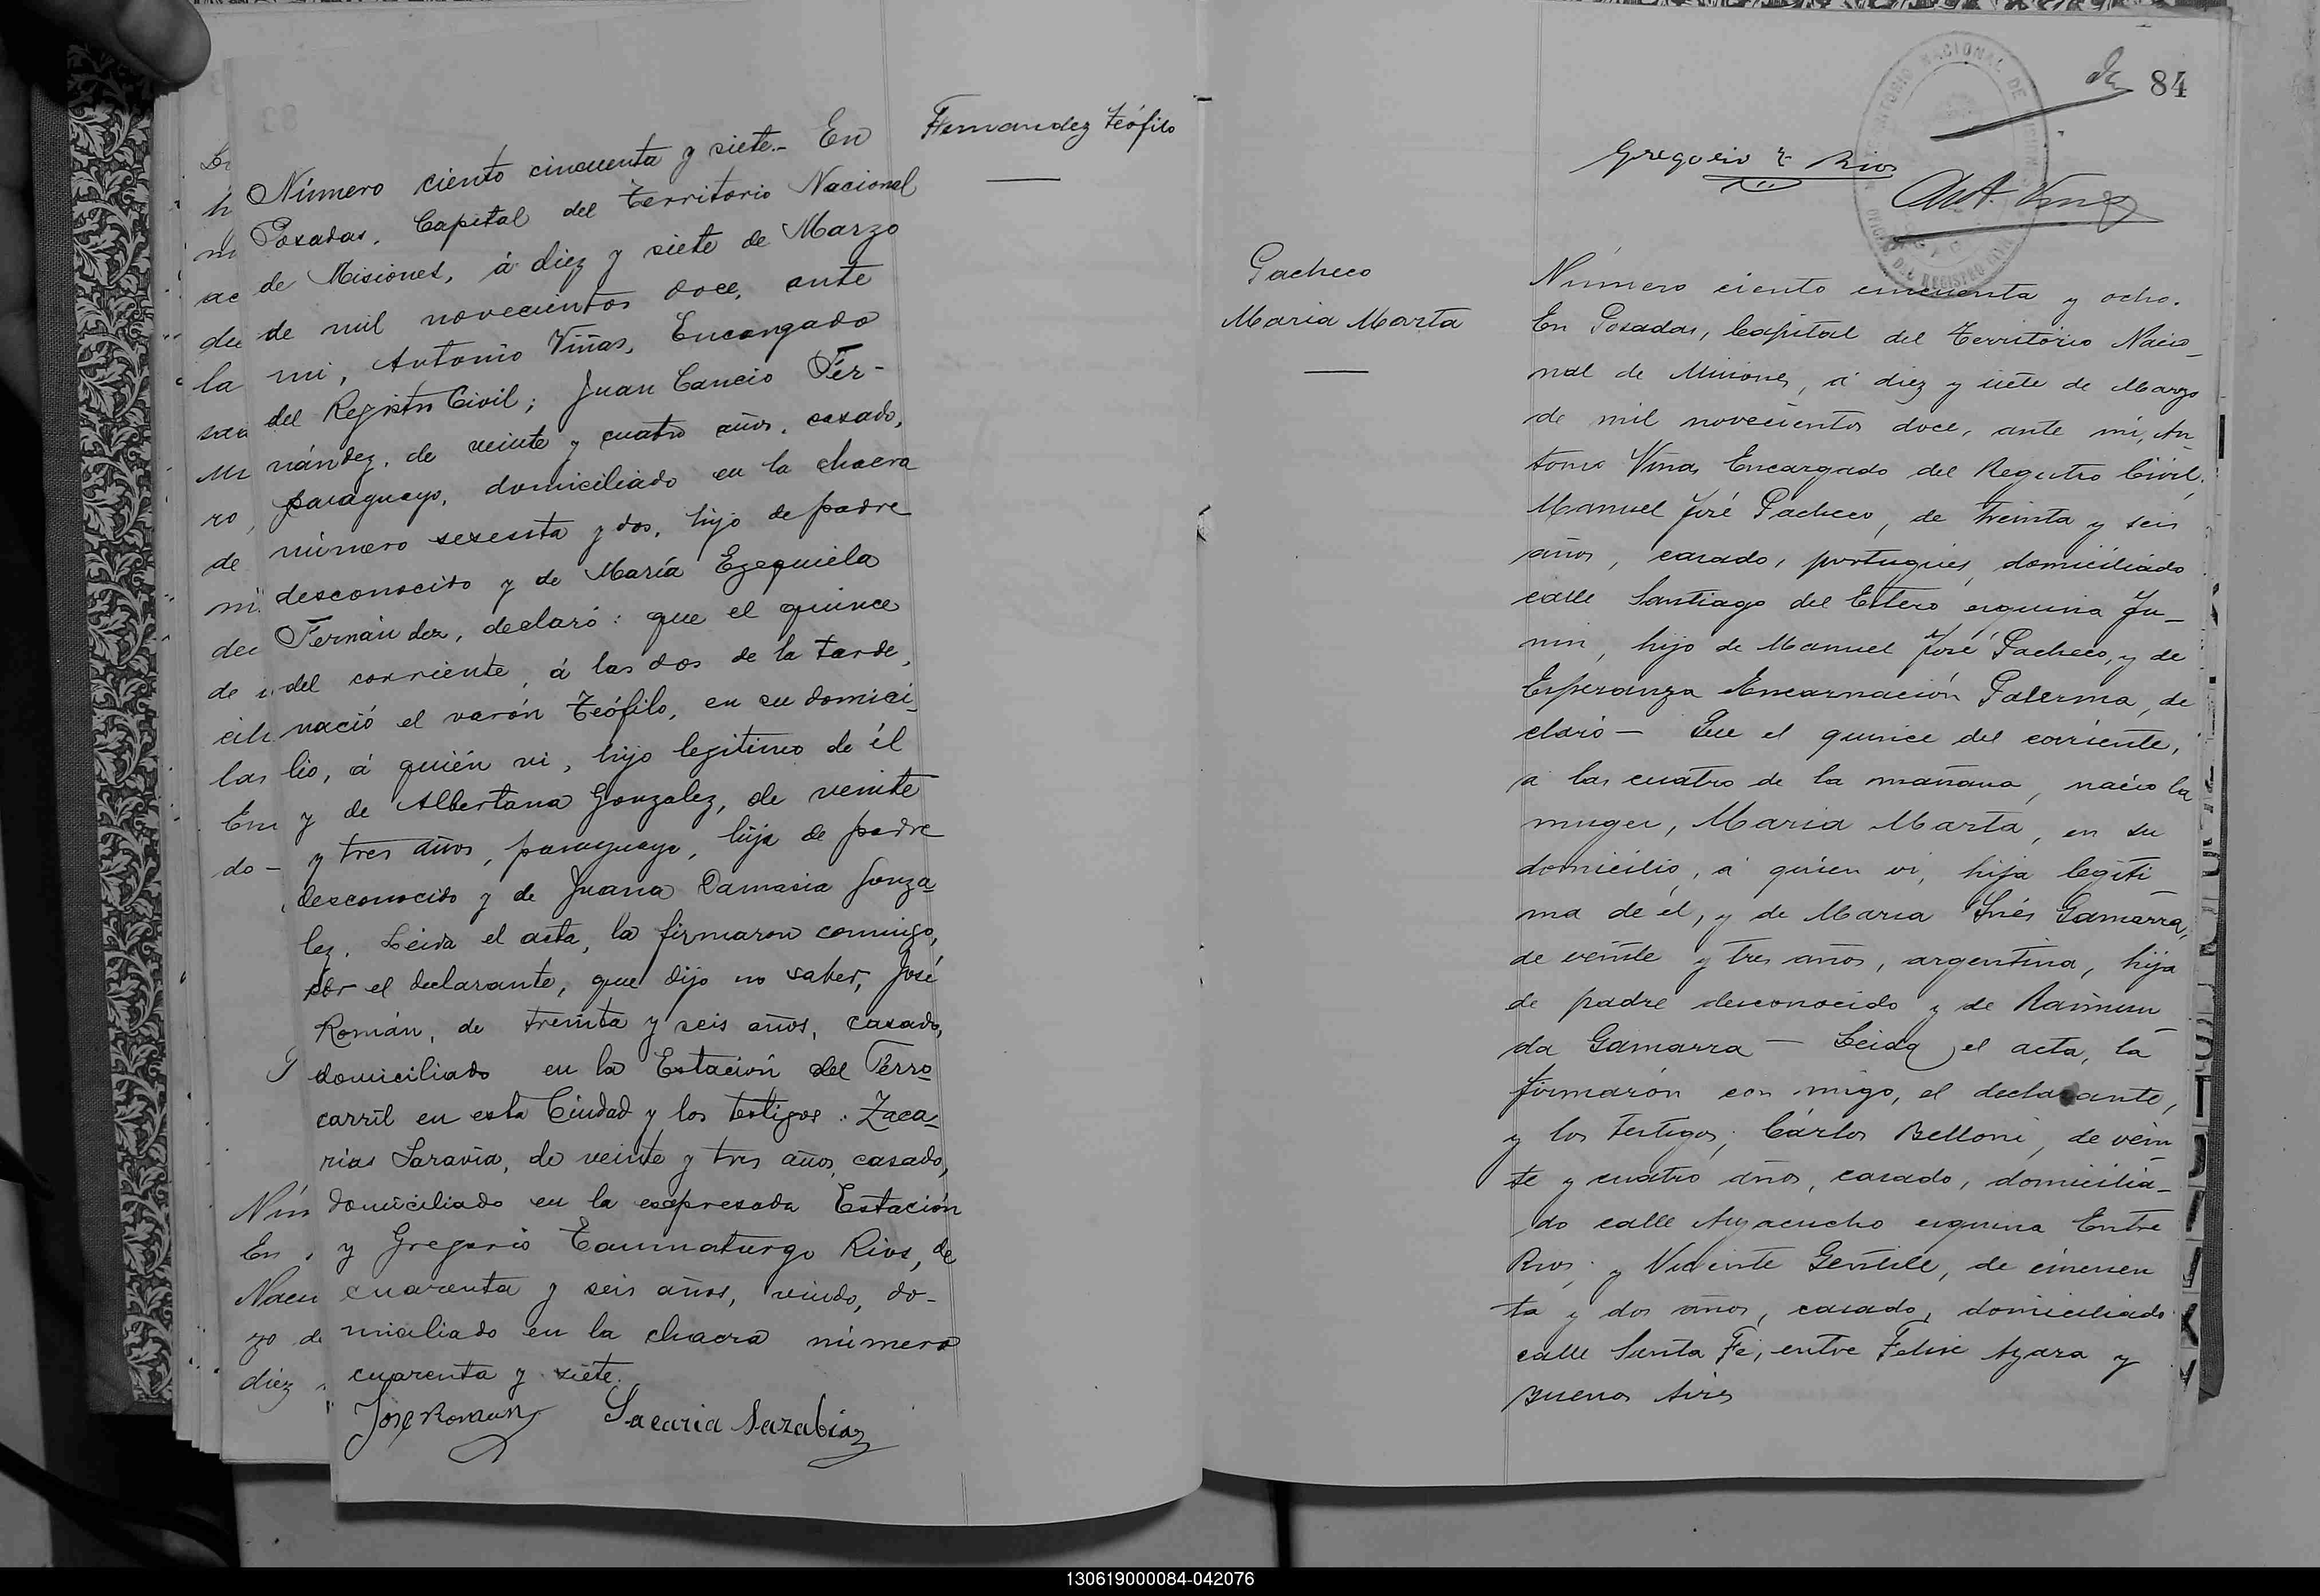 Fernandez Teófilo
Número ciento cincuenta y siete.- En
Posadas, Capital del territorio Nacional
de Misiones, á diez y siete de Marzo
de mil novecientos doce, ante
mi, Antonio Viñas, Encargado
del Registro Civil; Juan Cancio Fer-
nández, de veinte y cuatro años, casado,
paraguayo, domiciliado en la chacra
número sesenta y dos, hijo de padre
desconocido y de María Ezequiela
Fernández, declaró: que el quince
del corriente, á las dos de la tarde,
nació el varón Teófilo, en su domici-
lio, á quién vi, hijo legitimo de él
y de Albertana Gonzalez, de veinte
y tres años, paraguaya, hija de padre
desconocido y de Juana Damasia Gonza-
lez. Leida el acta, la firmaron conmigo,
por el declarante, que dijo no saber, José
Román, de treinta y seis años, casado,
domiciliado en la Estación del Ferro-
carril en esta Ciudad y los testigos: Zaca-
rias Saravia, de veinte y tres años, casado,
domiciliado en la expresada Estación
y Gregorio Taumaturgo Rios, de
cuarenta y seis años, viudo, do-
miciliado en la chacra número
cuarenta y siete.
Jose Roman Sacaria Sarabia
84
Gregorio T. Rios
Ant. Vinas
TERRITORIO NACIONAL DE MISIONES
OFICINA DEL REGISTRO CIVIL
Pacheco
Maria Marta
Número ciento cincuenta y ocho.
En Posadas, Capital del Territorio Nacio-
nal de Misiones, á diez y siete de Marzo
de mil novecientos doce, ante mi, An-
tonio Viñas Encargado del Registro Civil,
Manuel José Pacheco, de treinta y seis
años, casado, portugués, domiciliado
calle Santiago del Estero esquina Ju-
nin, hijo de Manuel José Pacheco, y de
Esperanza Encarnación Palerma, de
claró — Que el quince del corriente,
a las cuatro de la mañana, nació la
muger, Maria Marta, en su
domicilio, á quien vi, hija legiti-
ma de él, y de Maria Inés Gamarra,
de veinte y tres años, argentina, hija
de padre desconocido y de Raimun-
da Gamarra — Leida el acta, la
firmarón con migo, el declarante,
y los testigos; Cárlos Belloni, de vein-
te y cuatro años, casado, domicilia-
do calle Ayacucho esquina Entre
Rios; y Vicente Gentile, de cincuen
ta y dos años, casado, domiciliado
calle Santa Fé, entre Felix Azara y
Buenos Aires
130619000084-042076